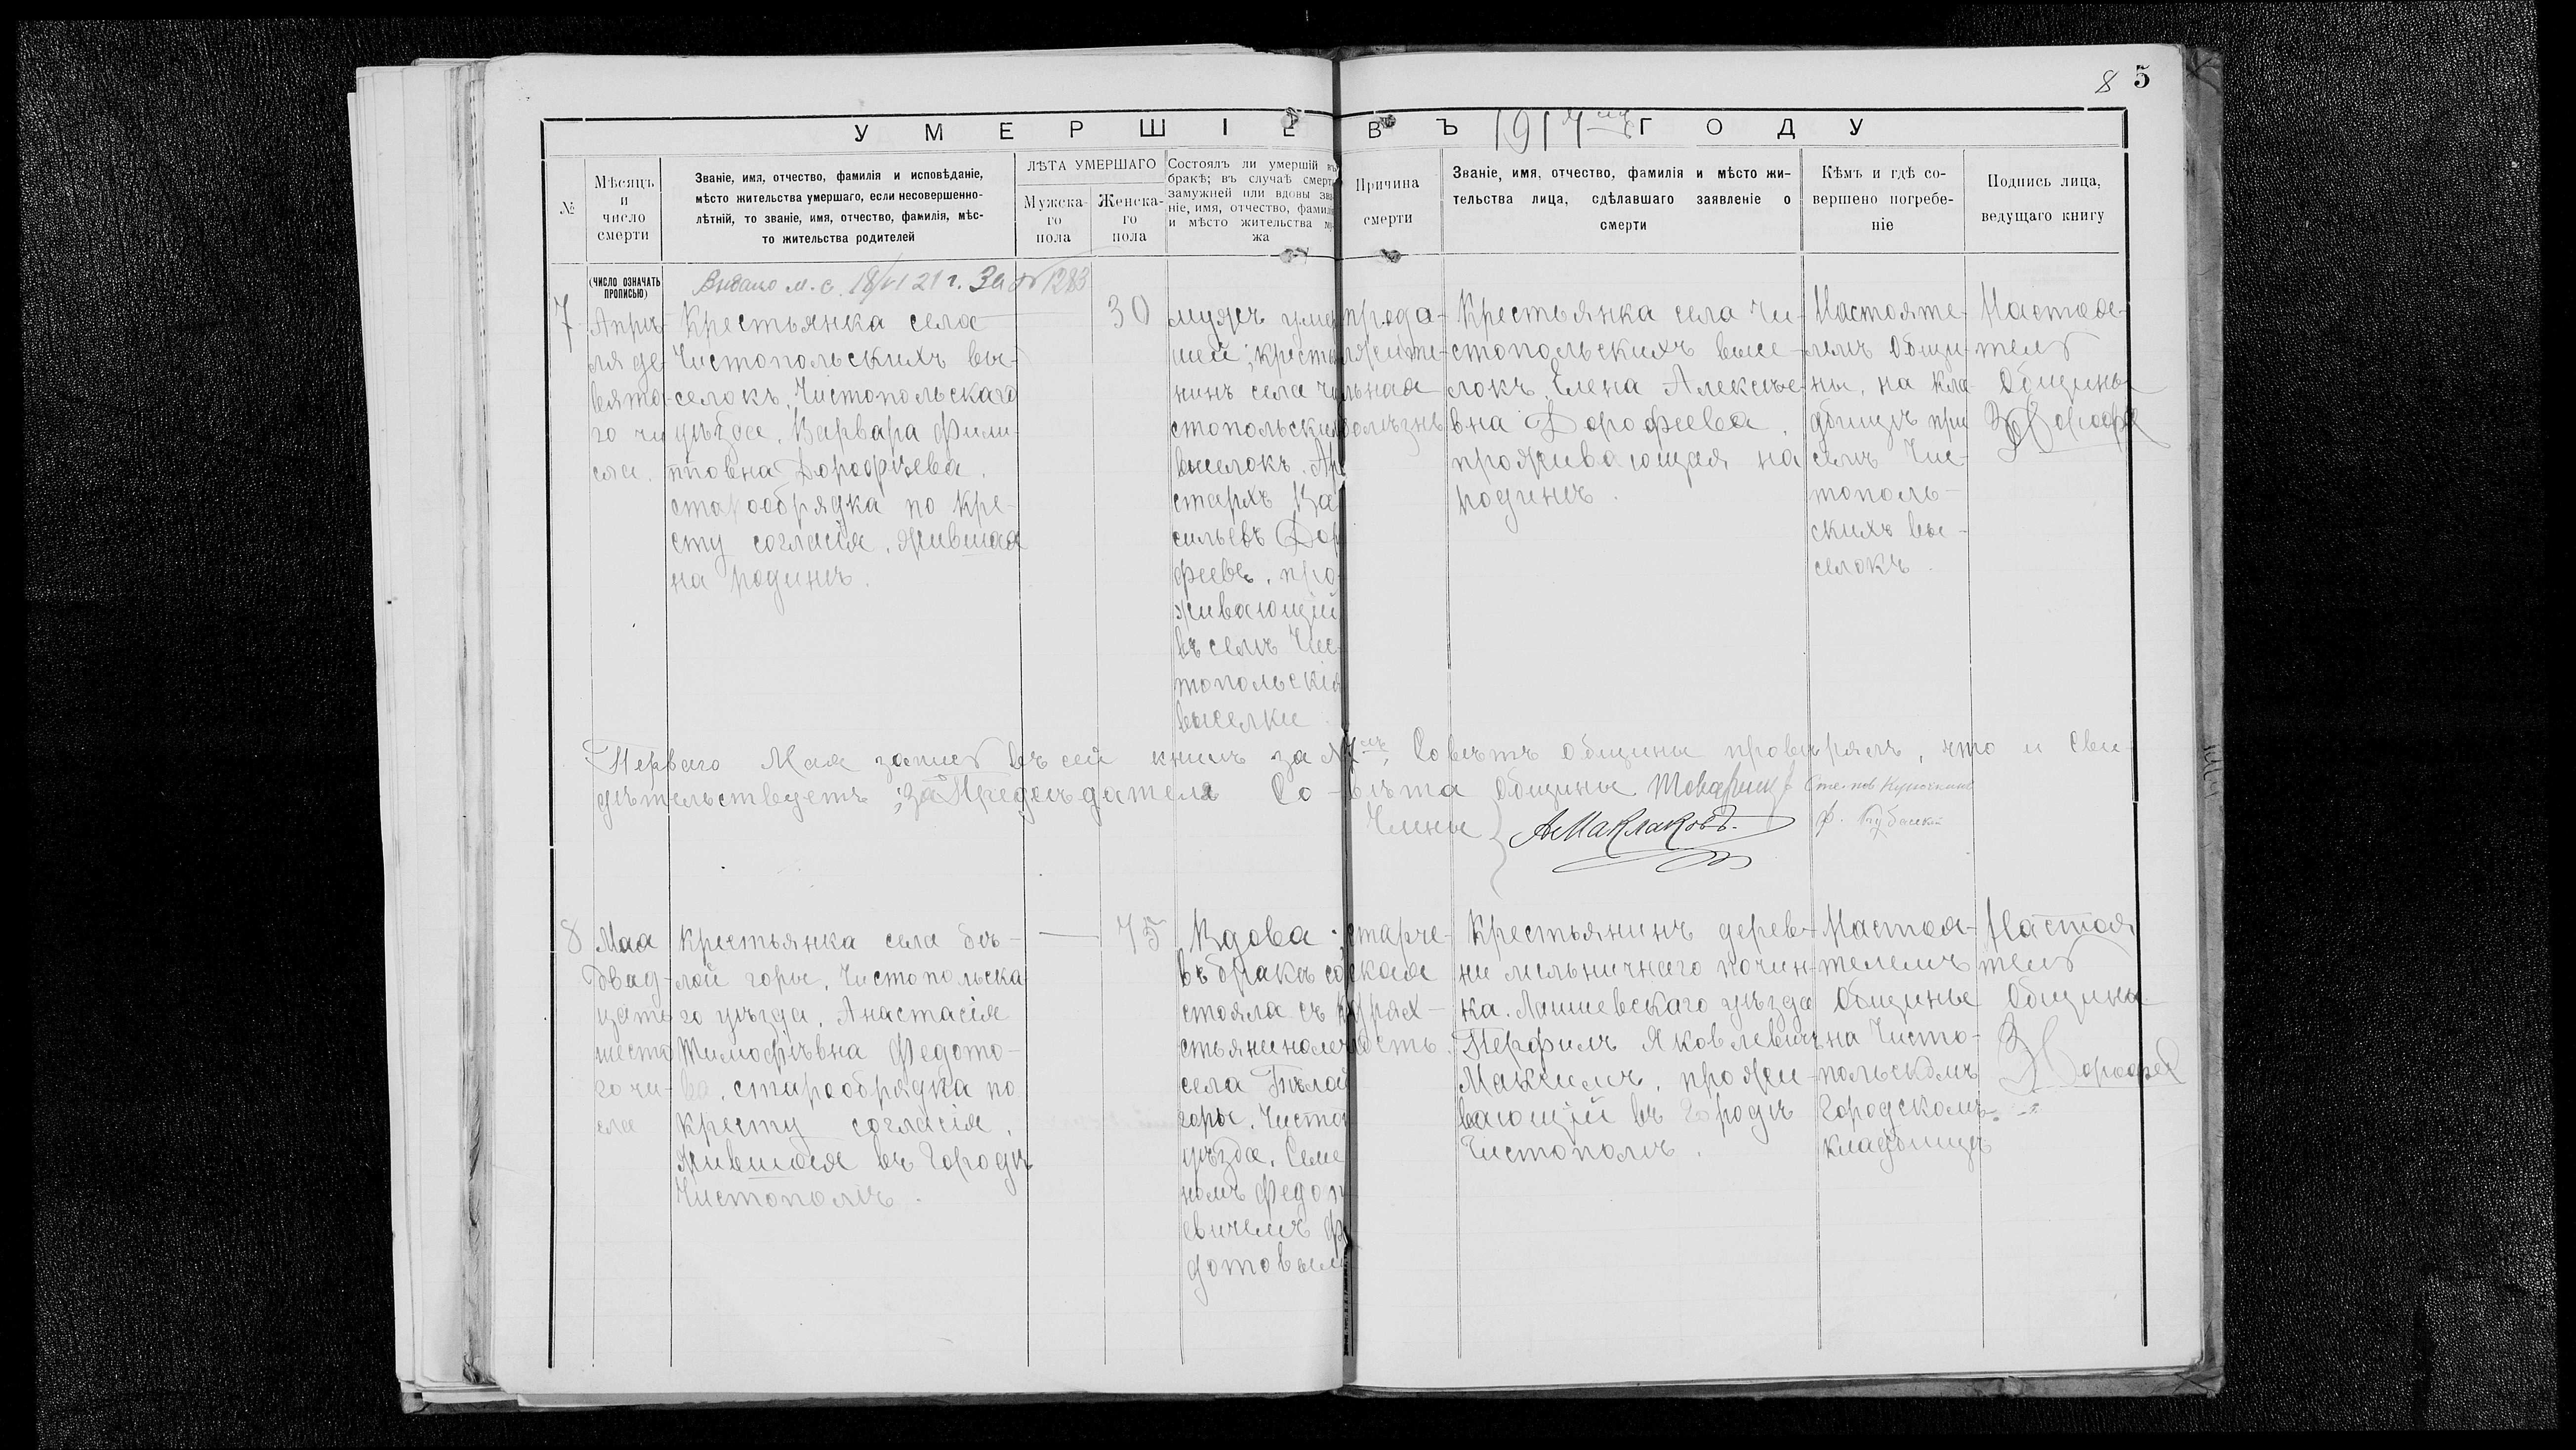 8 5
УМЕРШІЕ ВЪ 1917мъ ГОДУ
№
Мѣсяцъ
и
число
смерти
Званіе, имя, отчество, фамилія и исповѣданіе,
мѣсто жительства умершаго, если несовершенно-
лѣтній, то званіе, имя, отчество, фамилія, мѣс-
то жительства родителей
ЛѢТА УМЕРШАГО
Мужска-
го
пола
Женска-
го
пола
Состоялъ ли умершій въ
бракѣ; въ случаѣ смерти
замужней или вдовы зва-
ніе, имя, отчество, фамилія
и мѣсто жительства му-
жа
Причина
смерти
Званіе, имя, отчество, фамилія и мѣсто жи-
тельства лица, сдѣлавшаго заявленіе о
смерти
Кѣмъ и гдѣ со-
вершено погребе-
ніе
Подпись лица,
ведущаго книгу
(ЧИСЛО ОЗНАЧАТЬ
ПРОПИСЬЮ)
Выдано м. с. 18/VI 21 г. За № 1283
7
Апрѣ-
ля де-
вято-
го чи
сла.
Крестьянка села
Чистопольскихъ вы-
селокъ, Чистопольскаго
уѣзда, Варвара Фили-
повна Дорофѣева,
старообрядка по кре-
сту согласія, жившая
на родинѣ.
30
мужъ умер
шей; кресть
нинъ села Чи
стопольских
выселокъ. Ар
стархъ Ва
сильевъ Дор
феевъ, про-
живающій
въ селѣ Чис-
топольскія
выселки
прода-
лжите-
льная
болѣзнь
Крестьянка села Чи-
стопольскихъ высе-
локъ, Елена Алексѣе-
вна Дорофеева,
проживающая на
родинѣ.
Настояте-
лемъ Общи-
ны, на кла-
дбищѣ при
селѣ Чис-
тополь-
скихъ вы-
селокъ.
Настоя-
тель
Общины
З Дорофе
Перваго Мая запись въ сей книгѣ за №7мъ, Совѣтъ общины провѣрялъ, что и сви-
дѣтельствуетъ; за Предсѣдателя Совѣта Общины Товарищ
Члены
А Маклаковъ.
8
Мая
двад-
цать
шесто
го чи-
сла
Крестьянка села бѣ-
лой горы, Чистопольска
го уѣзда, Анастасія
Тимофѣвна Федото-
ва, старообрядка по
кресту согласія,
жившая въ городѣ
Чистополѣ.
75
Вдова.
въ бракѣ со
стояла съ кр
стьяниномъ
села Бѣлой
горы, Чисто
уѣзда, Семе
номъ Федот
евичемъ Фе
дотовымъ
старче-
ская
дрях-
лость
Крестьянинъ дерев-
ни мельничнаго почин-
ка. Лаишевскаго уѣзда
Перфилъ Яковлевичъ
, прожи-
вающій въ городѣ
Чистополѣ.
Настоя-
телемъ
Общины
на Чисто-
польскомъ
Городскомъ
кладбищѣ
Настоя
тель
Общины
З Дорофе